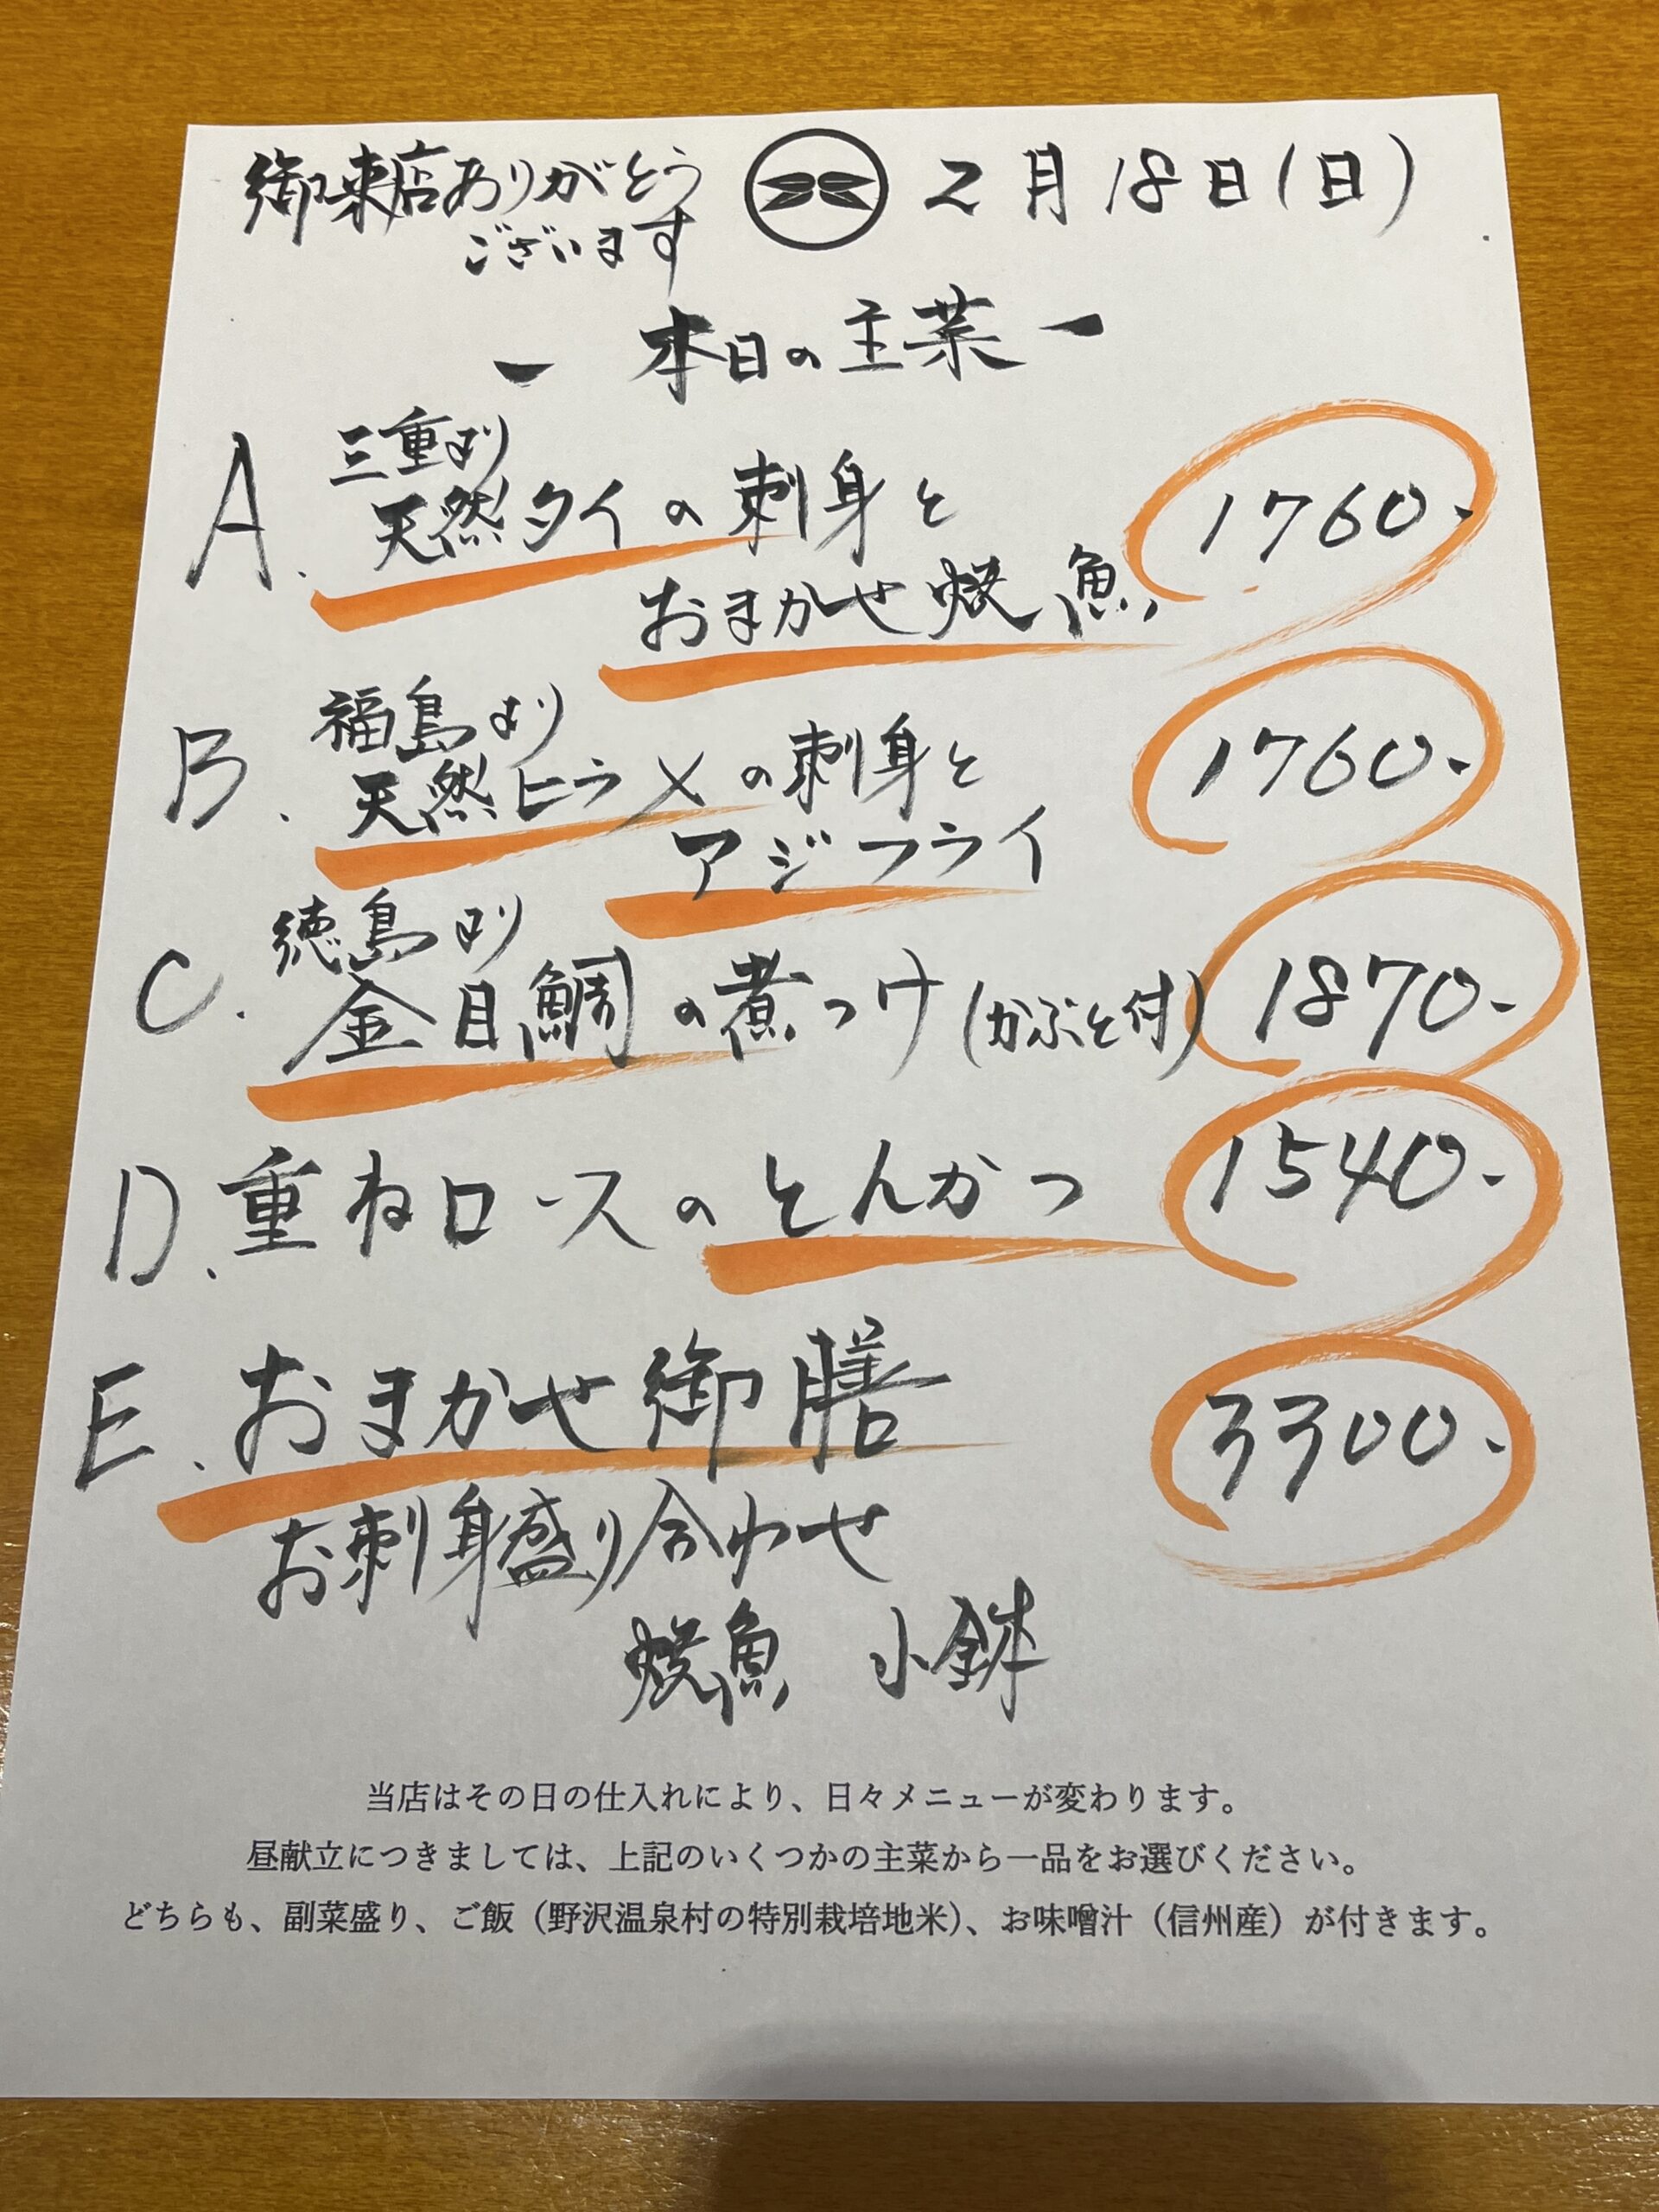 御来店ありがとう
ございます
2月18日(日)
ー 本日の主菜 ー
A. 三重より
天然タイの刺身と
おまかせ焼魚
1760-
B. 福島より
天然ヒラメの刺身と
アジフライ
1760-
C. 徳島より
金目鯛の煮つけ(かぶと付)
1870-
D. 重ねロースのとんかつ 1540-
E. おまかせ御膳 3300-
お刺身盛り合わせ
焼魚 小鉢
当店はその日の仕入れにより、日々メニューが変わります。
昼献立につきましては、上記のいくつかの主菜から一品をお選びください。
どちらも、副菜盛り、ご飯（野沢温泉村の特別栽培地米）、お味噌汁（信州産）が付きます。